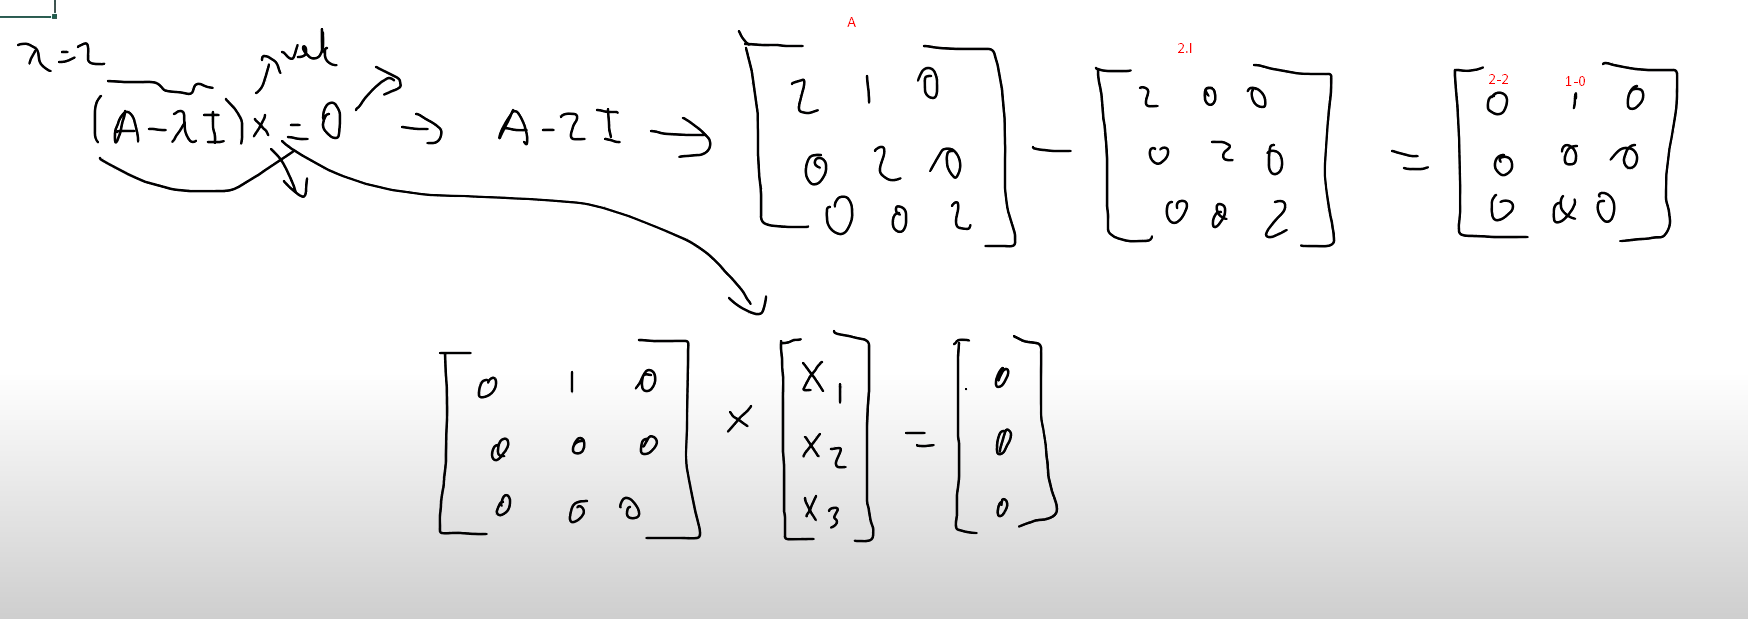 λ=2
vek
A
2.I
(A-λI)x=0 → A-2I →
2 1 0
0 2 0
0 0 2
-
2 0 0
0 2 0
0 0 2
=
2-2 1-0
0 1 0
0 0 0
0 0 0
0 1 0
0 0 0
0 0 0
×
x1
x2
x3
=
0
0
0